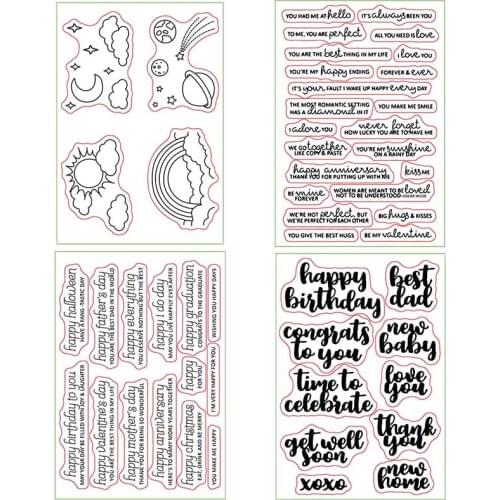 YOU HAD ME AT hello
IT'S always BEEN YOU
TO ME, YOU ARE perfect
ALL YOU NEED IS love
YOU ARE THE best THING IN MY LIFE
I love YOU
YOU'RE MY happy ENDING
FOREVER & ever
IT'S your FAULT I WAKE UP HAPPY every DAY
THE MOST ROMANTIC SETTING
HAS A diamond IN IT
YOU MAKE ME SMILE
I adore YOU
never forget
HOW LUCKY YOU ARE TO HAVE ME
WE go together
LIKE COPY & PASTE
YOU'RE MY sunshine
ON A RAINY DAY
happy anniversary
THANK YOU FOR PUTTING UP WITH ME
kiss ME
BE mine
FOREVER
WOMEN ARE MEANT TO BE loved
NOT TO BE UNDERSTOOD -OSCAR WILDE
WE'RE NOT perfect, BUT
WE'RE PERFECT FOR EACH OTHER
BIG hugs & KISSES
YOU GIVE THE BEST HUGS
BE MY valentine
happy halloween
HAVE A FANG-TASTIC DAY
happy father's day
YOU ARE THE BEST DAD IN THE WORLD
happy everything
YOU DESERVE NOTHING BUT THE BEST
happy i do day
MAY YOU LIVE HAPPILY EVER AFTER
happy graduation
CONGRATS TO THE GRADUATE
WISHING YOU HAPPY DAYS
happy birthday to you
MAY YOUR DAY BE FILLED WITH LAUGHTER
happy valentine's day
YOU ARE THE BEST THING IN MY LIFE
happy mother's day
THANK YOU FOR BEING SO WONDERFUL
happy anniversary
HERE'S TO MANY MORE YEARS TOGETHER
happy christmas
EAT, DRINK AND BE MERRY
happy
FOR YOU
I'M VERY HAPPY FOR YOU
YOU MAKE ME HAPPY
happy
birthday
best
dad
congrats
to you
new
baby
time to
celebrate
love
you
get well
soon
thank
you
xoxo
new
home